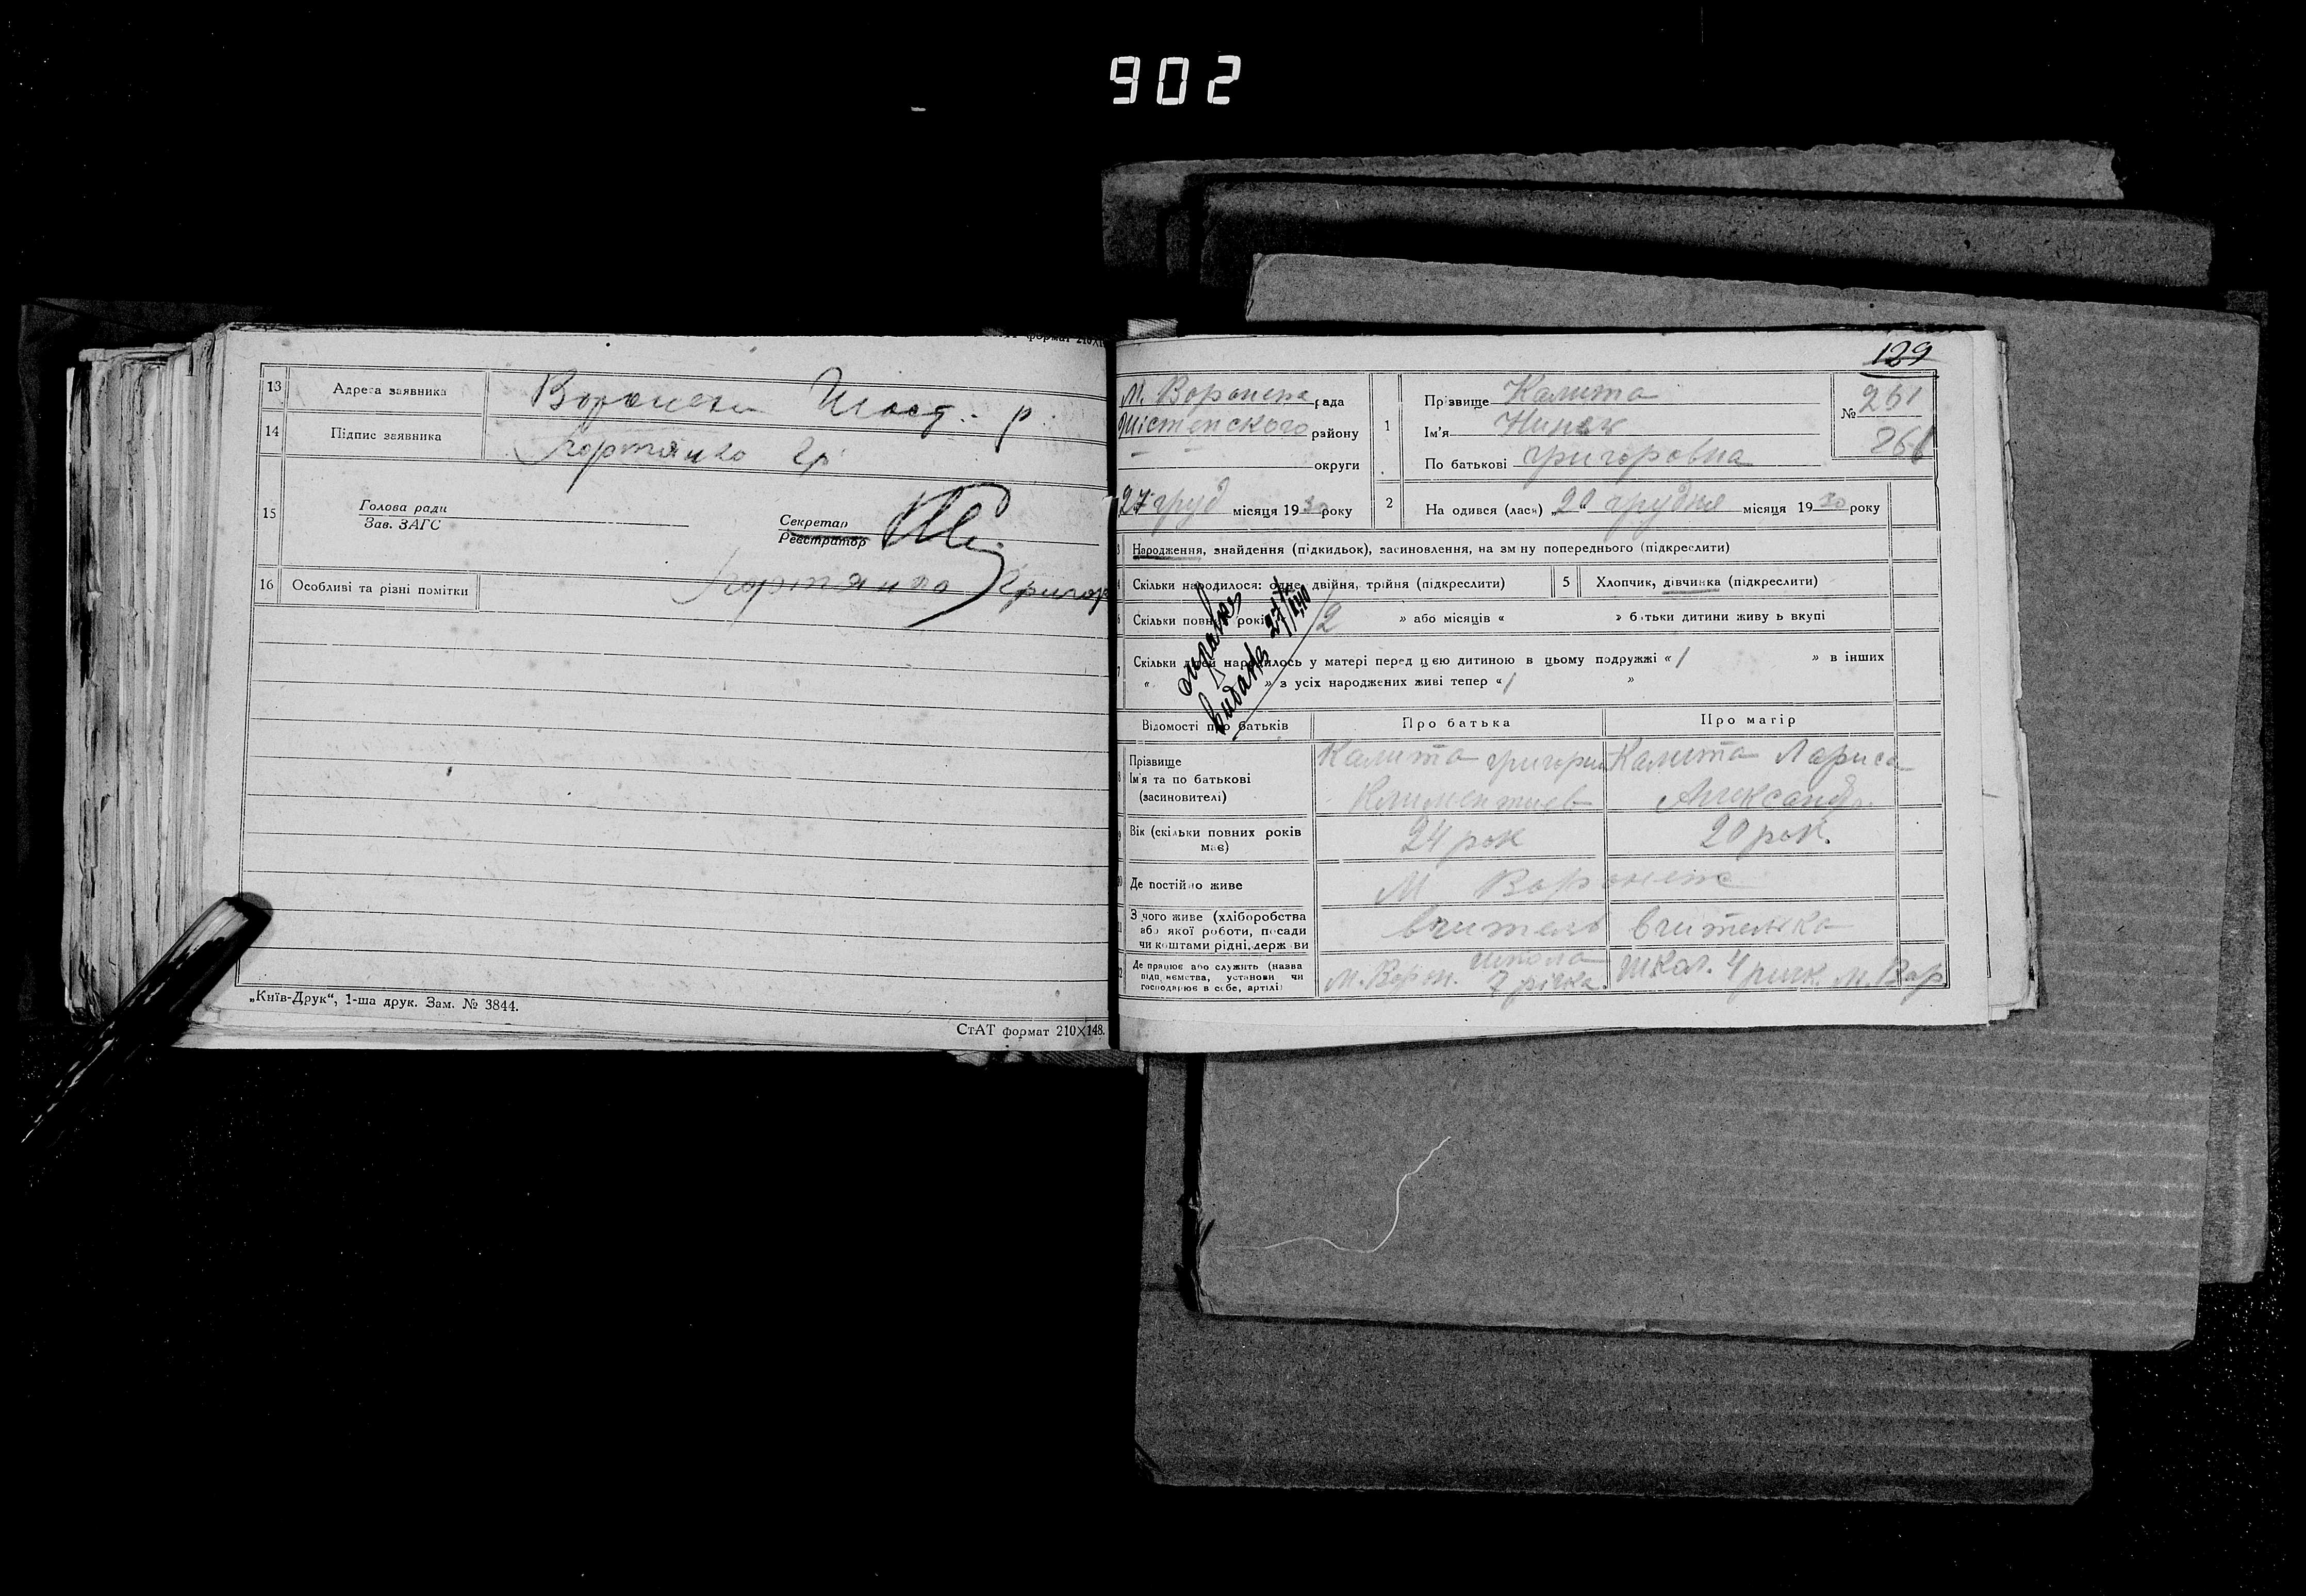 902
13 Адреса заявника Воронеж Шост. р.
14 Підпис заявника Гр
15 Голова ради
Зав. ЗАГС
Секретар
Реєстратор
16 Особливі та різні помітки Григор
„Київ-Друк“, 1-ша друк. Зам. № 3844.
СтАТ формат 210×148.
129
М. Воронеж рада
району
округи
27 груд місяця 1930 року
1 Прізвище Калита
Ім'я
По батькові Григоровна
№ 261
261
2 На одився (лася) „20 грудня місяця 1930 року
Народження, знайдення (підкидьок), засиновлення, на зміну попереднього (підкреслити)
Скільки народилося: одне, двійня, трійня (підкреслити)
5 Хлопчик, дівчинка (підкреслити)
Скільки повних років 2 » або місяців « » батьки дитини живуть вкупі
Скільки дітей народилось у матері перед цією дитиною в цьому подружжі « 1 » в інших
« » з усіх народжених живі тепер « 1 »
видана 27/
Відомості про батьків
Про батька
Про матір
Прізвище
Ім'я та по батькові
(засиновителі)
Калита Григорий
Климентиев
Калита Лариса
Александр.
Вік (скільки повних років
має)
24 рок
20 рок.
Де постійно живе
М Воронеж
З чого живе (хліборобства
або якої роботи, посади
чи коштами рідні, держави
вчитель
вчителька
Де працює або служить (назва
підприємства, установи чи
господарює в себе, артілі)
школа
М. Ворон. 7 річка.
шкал. 4 ричк. м. Вор